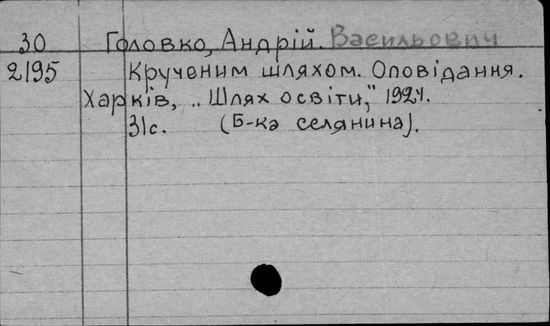 30 Головко, Андрій. Васильович
2195 Крученим шляхом. Оповідання.
Харків, „Шлях освіти," 1924.
31с. (Б-ка селянина).